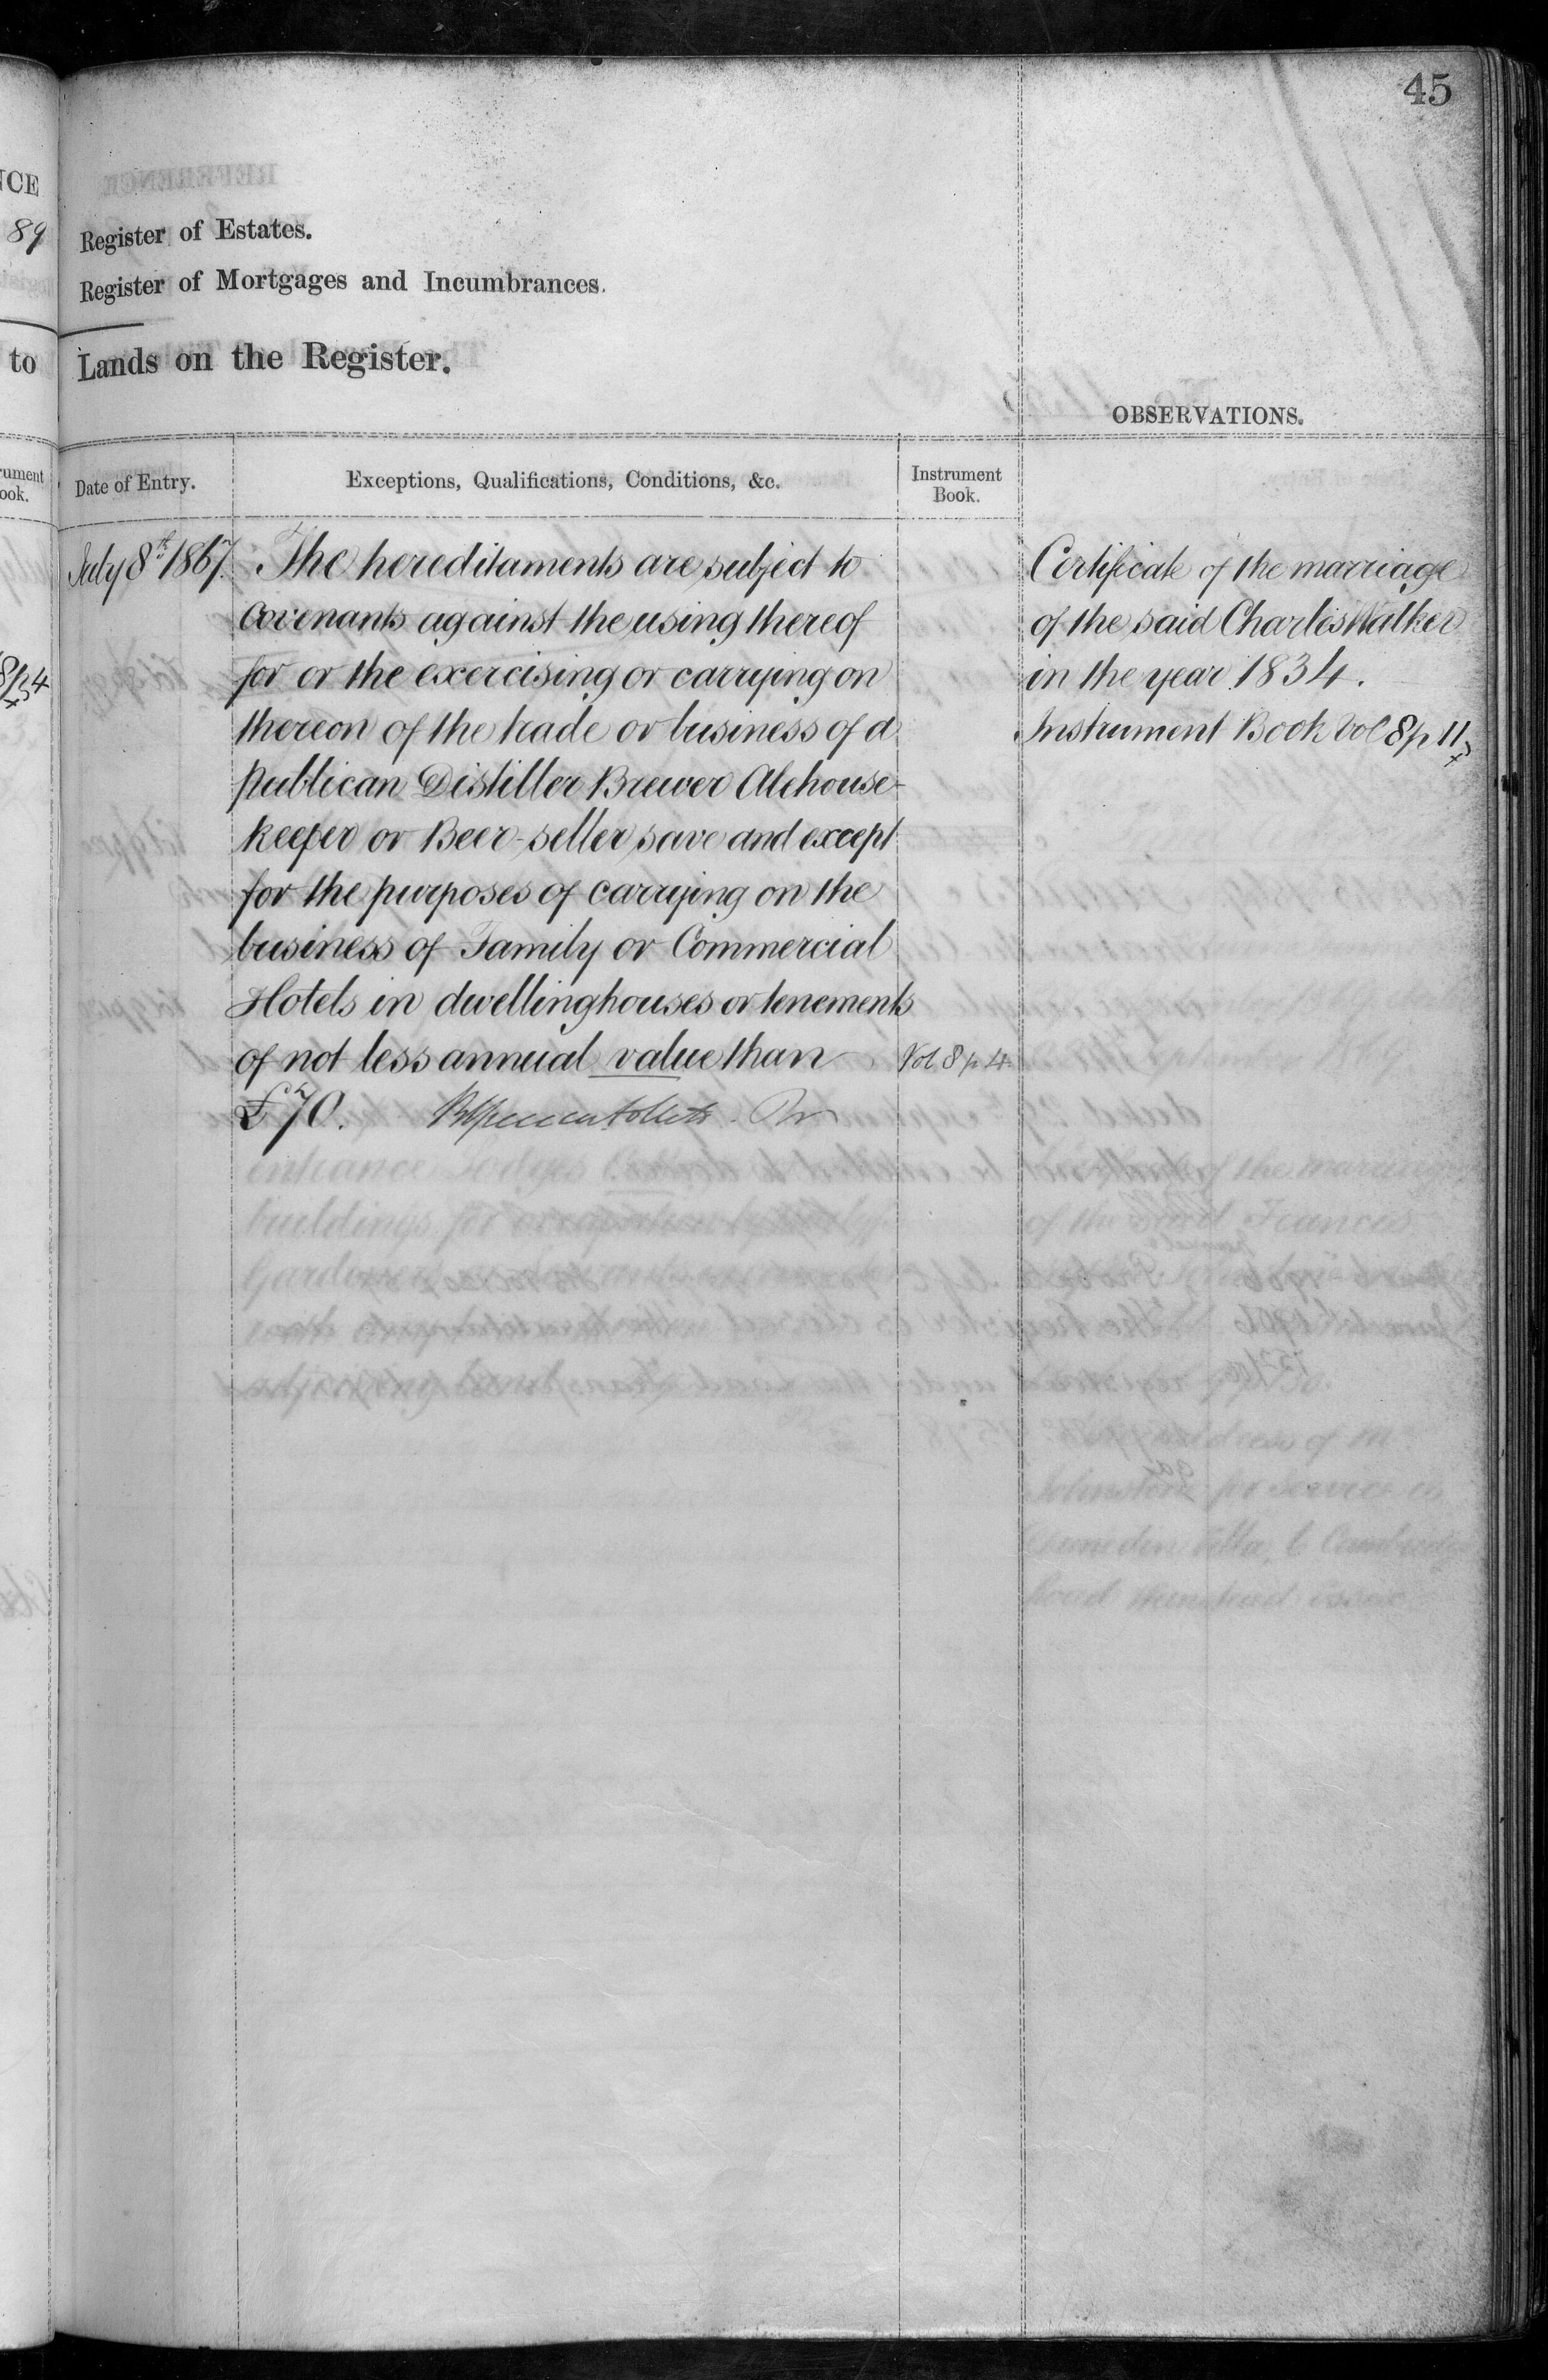 45
NCE
89
Register of Estates.
Register of Mortgages and Incumbrances.
to
Lands on the Register.
OBSERVATIONS.
Date of Entry.
Exceptions, Qualifications, Conditions, &c.
Instrument
Book.
July 8th 1867.
The hereditaments are subject to
Covenants against the using thereof
for or the exercising or carrying on
thereon of the trade or business of a
Publican Distiller Brewer Alehouse-
keeper or Beer-seller save and except
for the purposes of carrying on the
business of Family or Commercial
Hotels in dwellinghouses or tenements
of not less annual value than
£70.
Vol 8 p 4
Certificate of the marriage
of the said Charles Walker
in the year 1834.
Instrument Book Vol 8 p 11